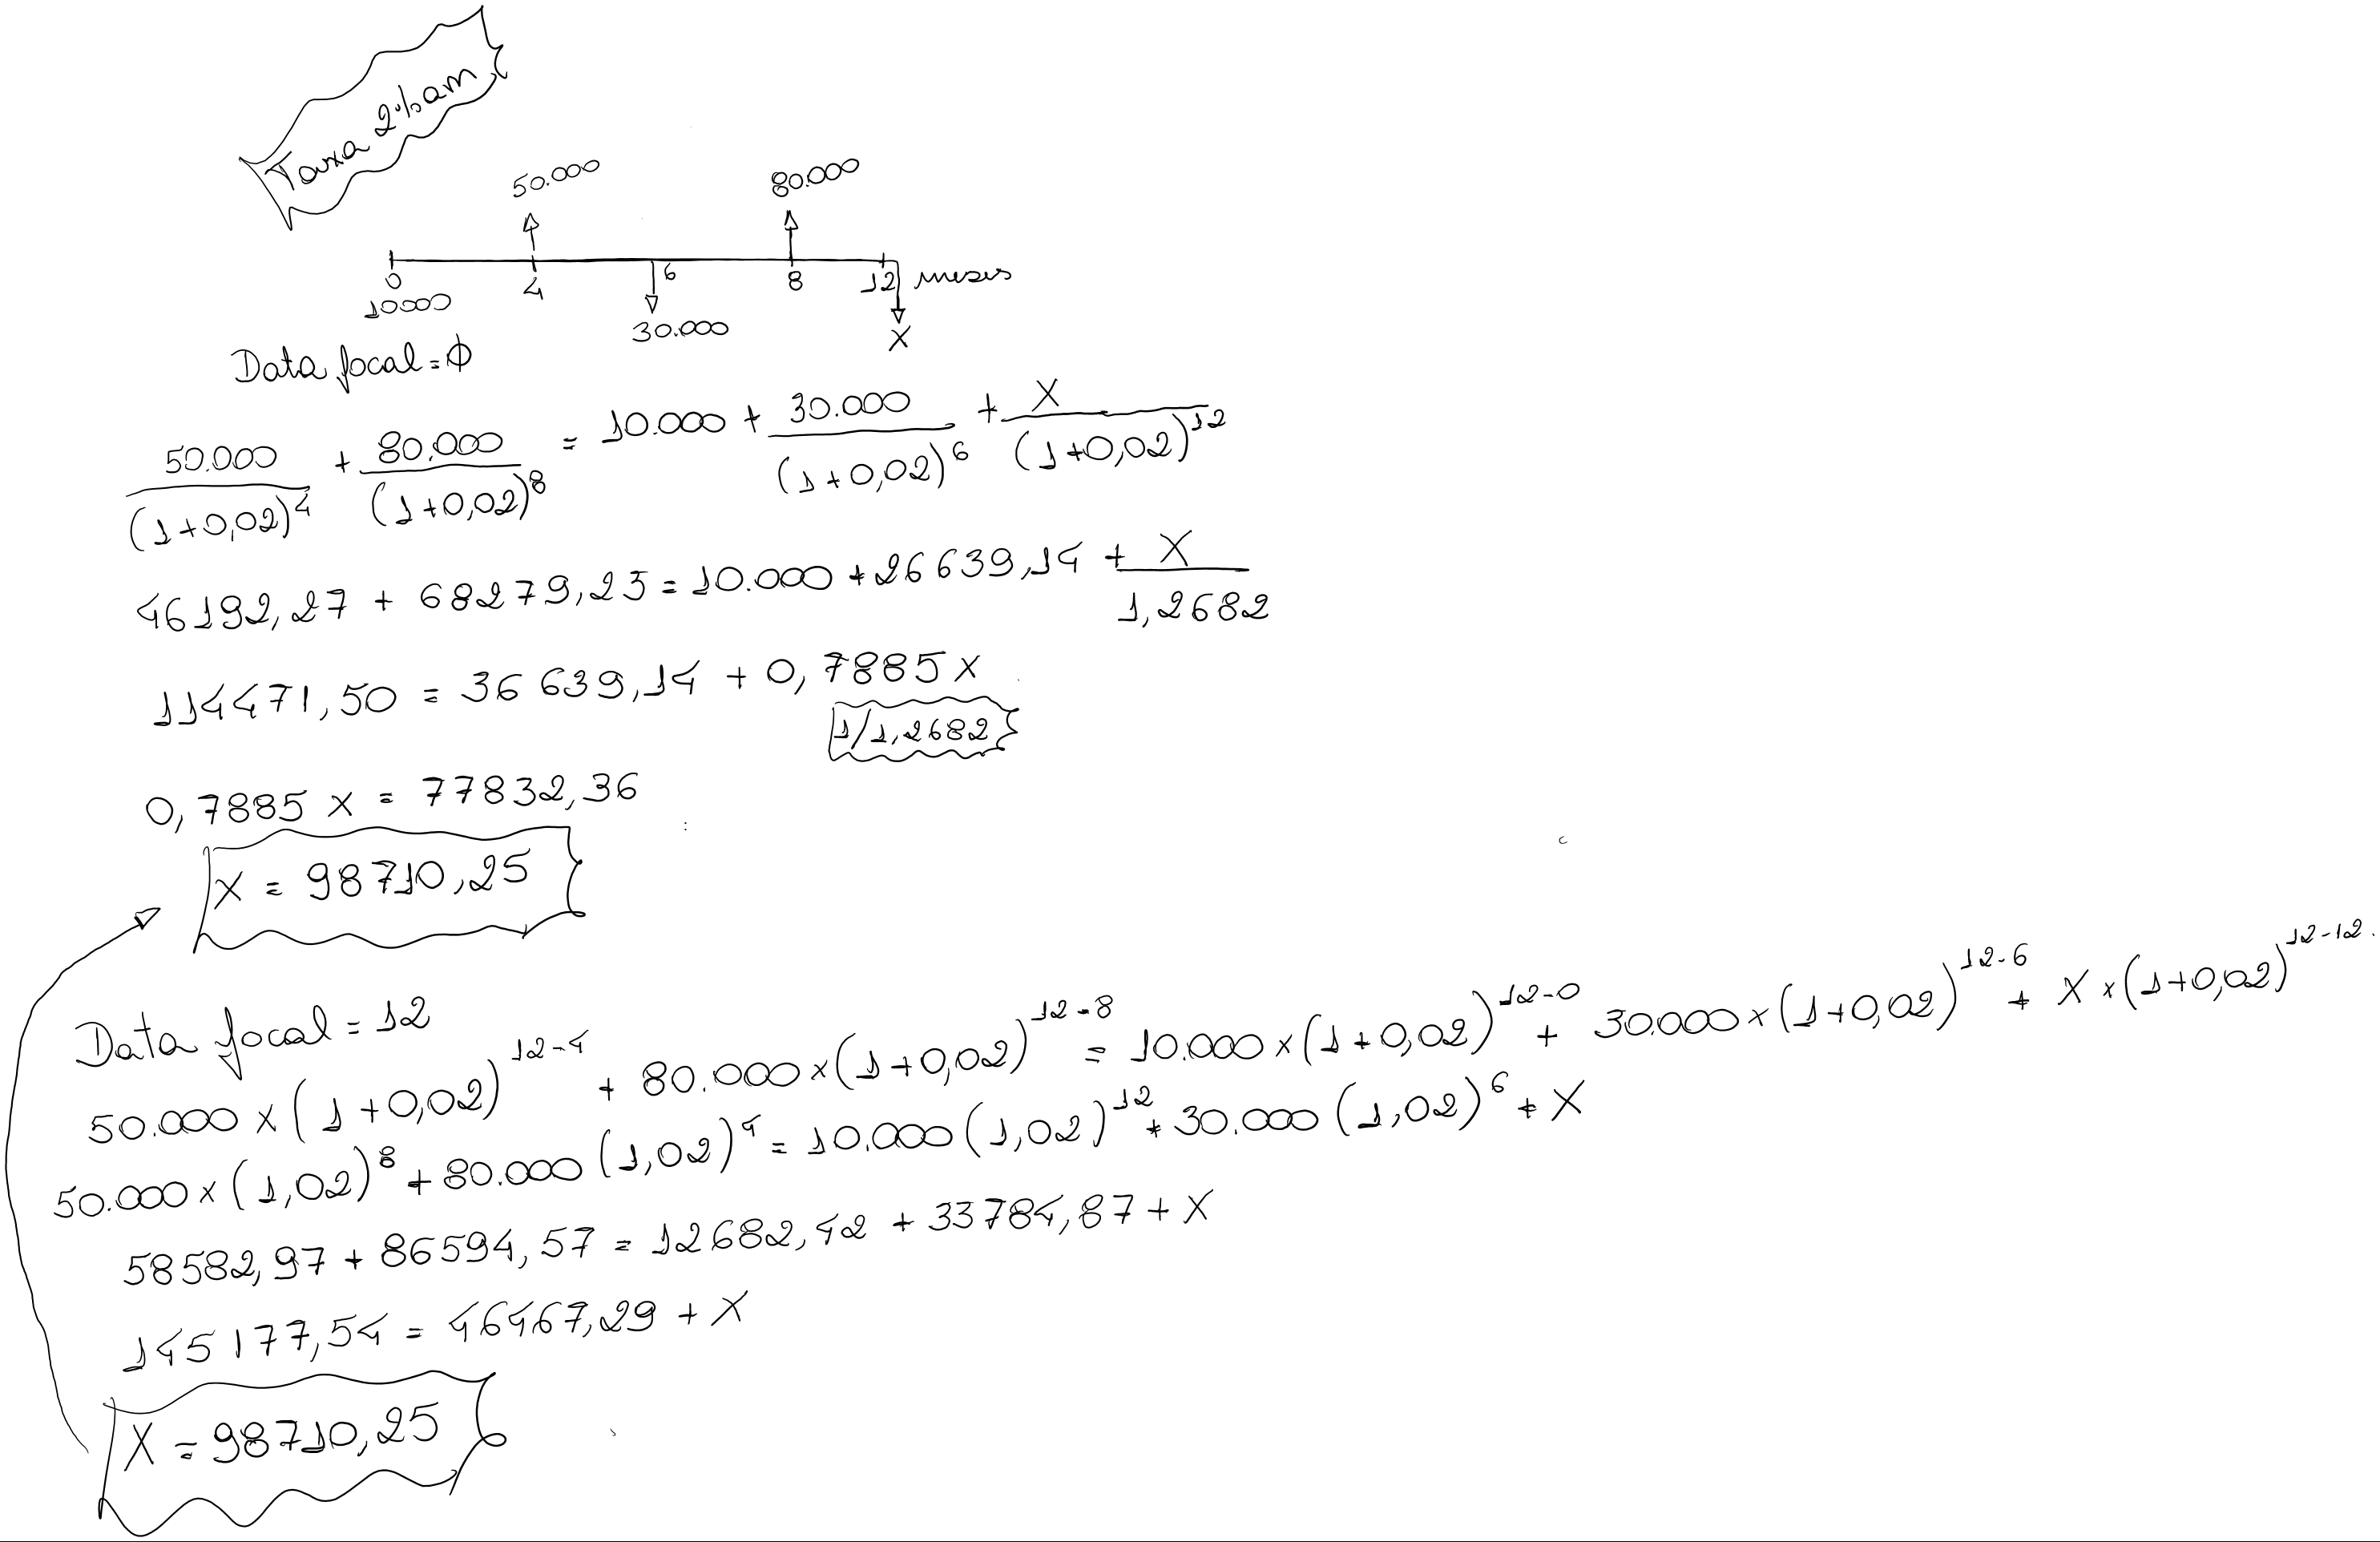 Taxa 2% am
50.000 80.000
0 4 6 8 12 meses
10000 30.000 X
Data focal = ϕ
50.000/(1+0,02)^4 + 80.000/(1+0,02)^8 = 10.000 + 30.000/(1+0,02)^6 + X/(1+0,02)^12
46192,27 + 68279,23 = 10.000 + 26639,14 + X/1,2682
114471,50 = 36639,14 + 0,7885 x
1/1,2682
0,7885 x = 77832,36
X = 98710,25
Data focal = 12
50.000 x (1+0,02)^12-4 + 80.000 x (1+0,02)^12-8 = 10.000 x (1+0,02)^12-0 + 30.000 x (1+0,02)^12-6 + X x (1+0,02)^12-12
50.000 x (1,02)^8 + 80.000 (1,02)^4 = 10.000 (1,02)^12 + 30.000 (1,02)^6 + X
58582,97 + 86594,57 = 12682,42 + 33784,87 + X
145177,54 = 46467,29 + X
X = 98710,25